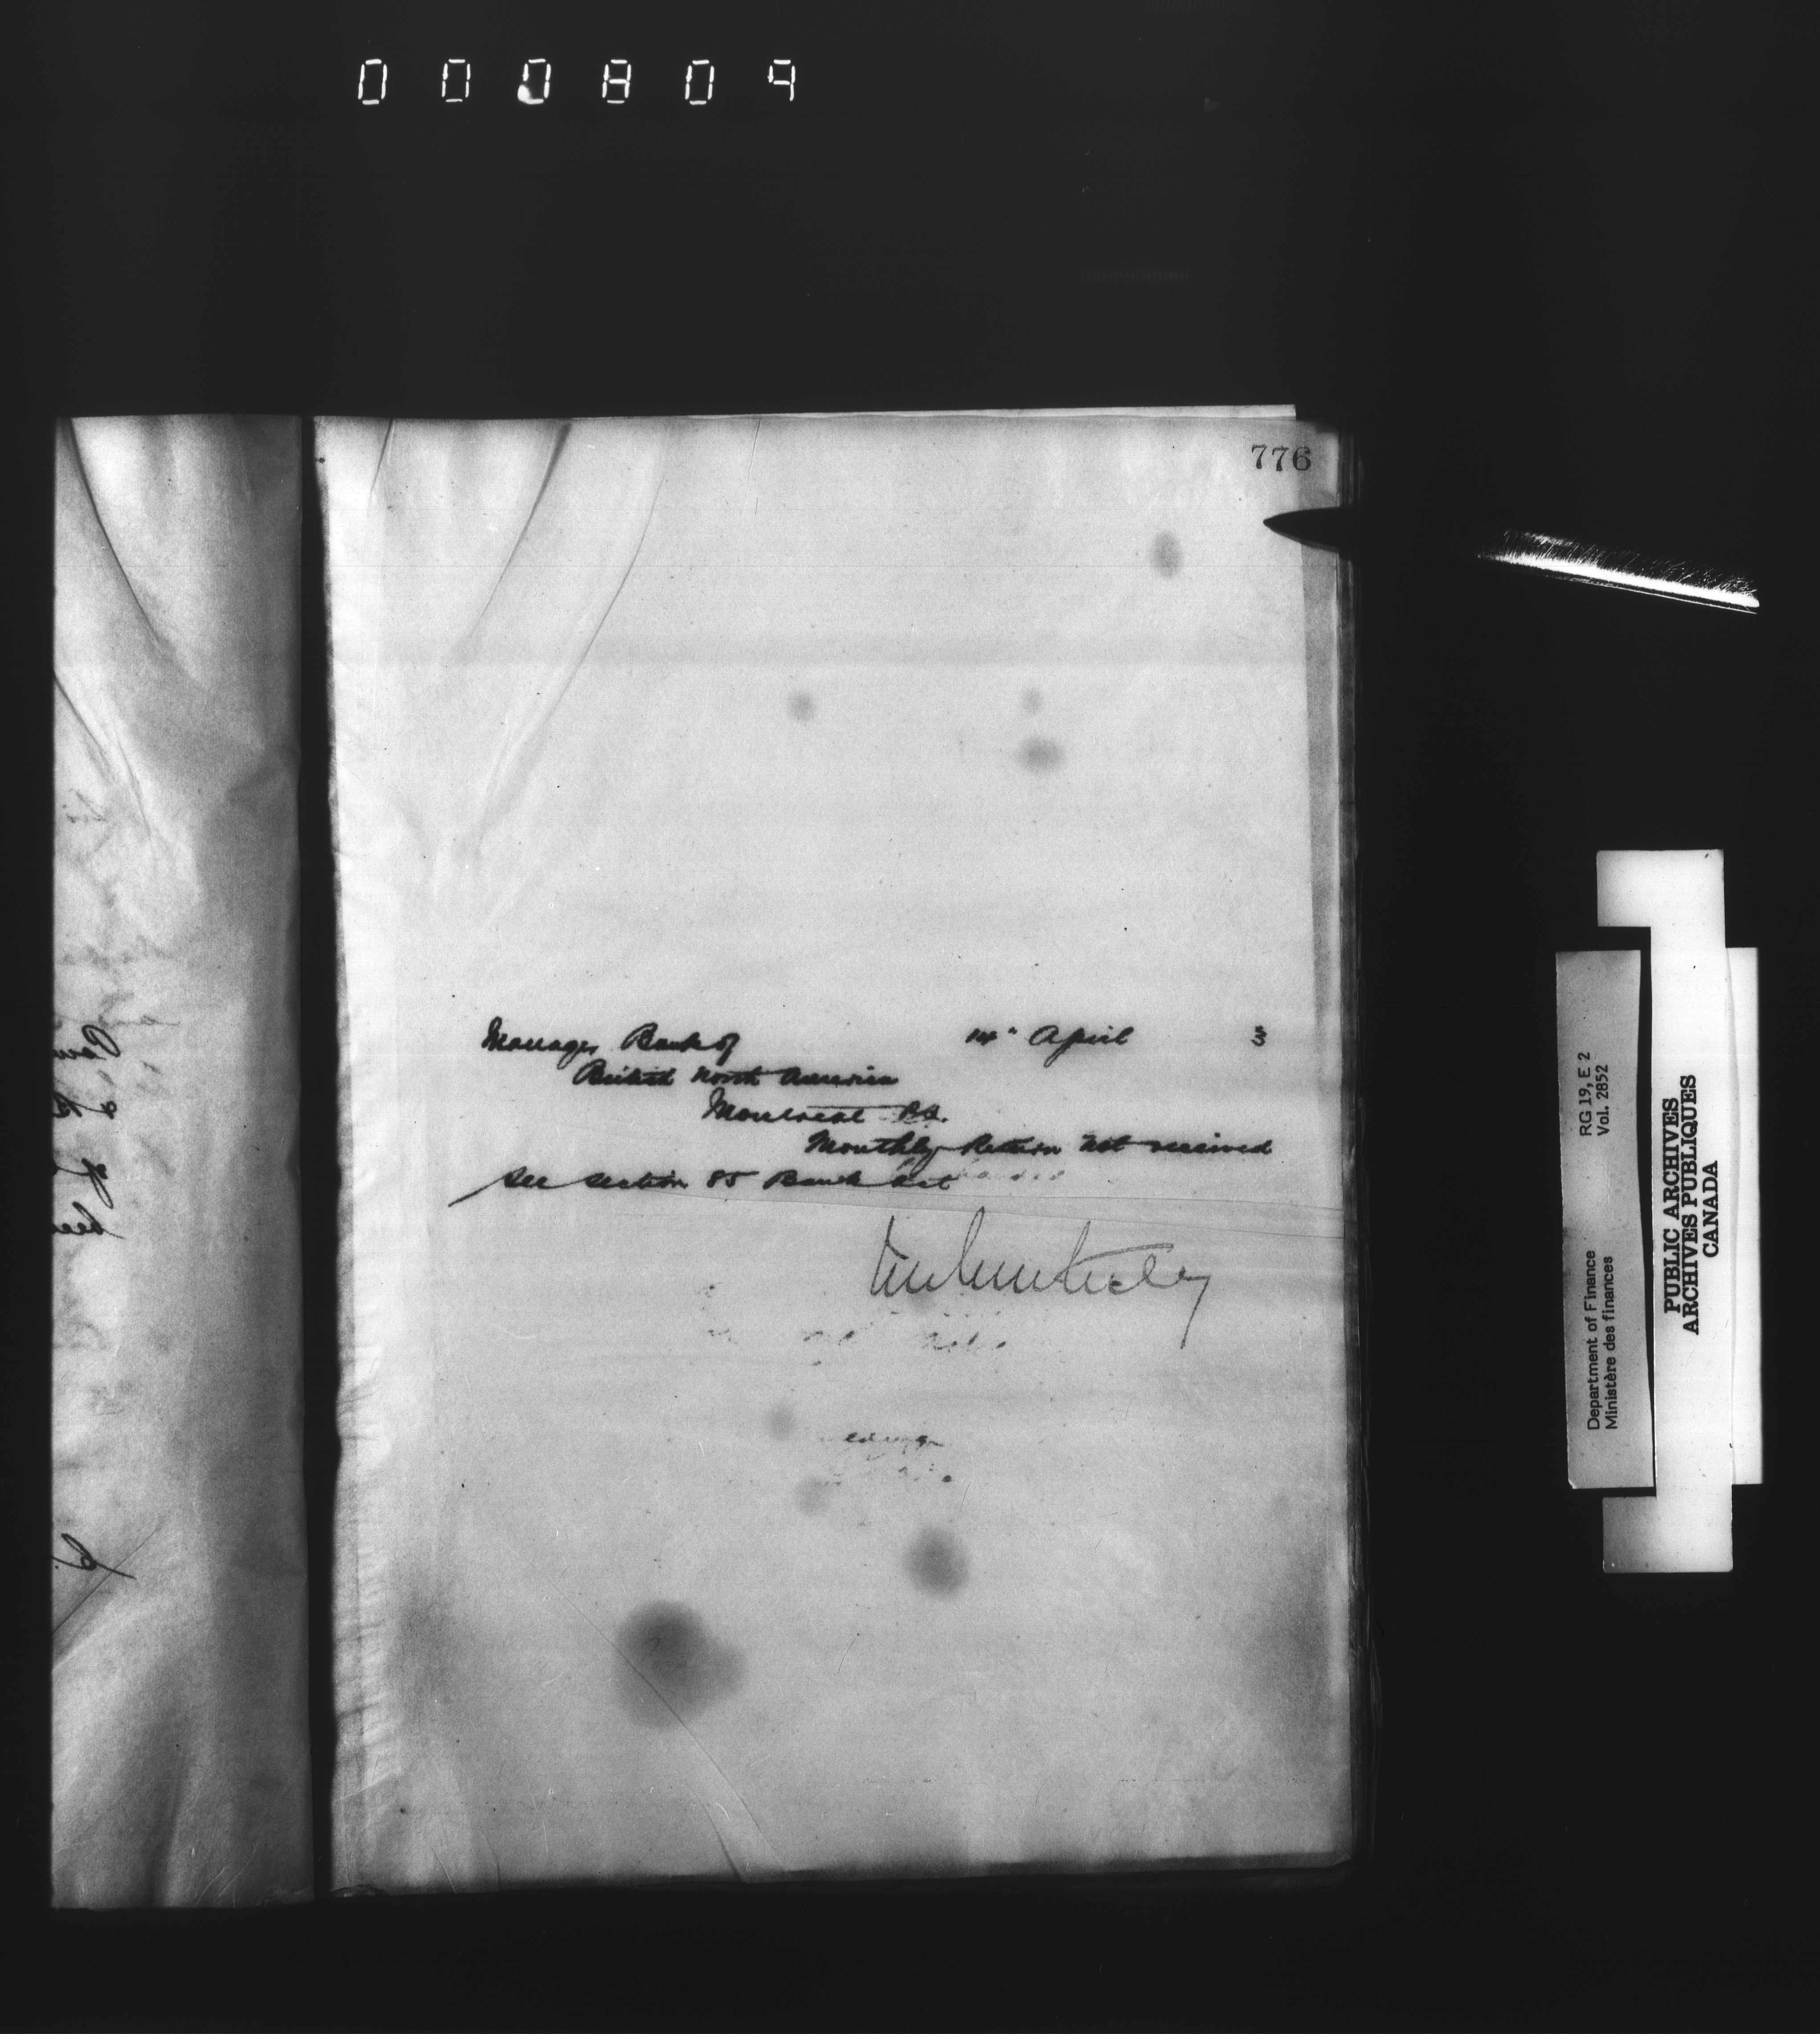 000809
776
Manager Bank of 14" April 3
British North America
Montreal P.Q.
Monthly Return not received
See Section 85 Bank Act
RG 19, E 2
Vol. 2852
Department of Finance
Ministère des finances
PUBLIC ARCHIVES
ARCHIVES PUBLIQUES
CANADA